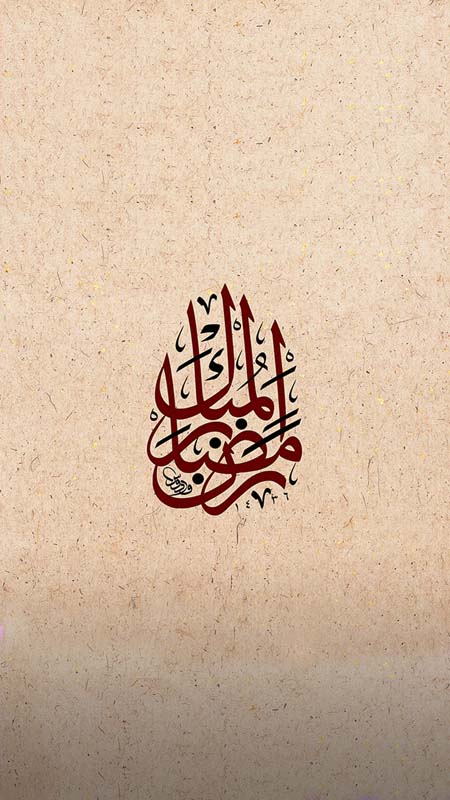 رمضان المبارك
١٤٣٦